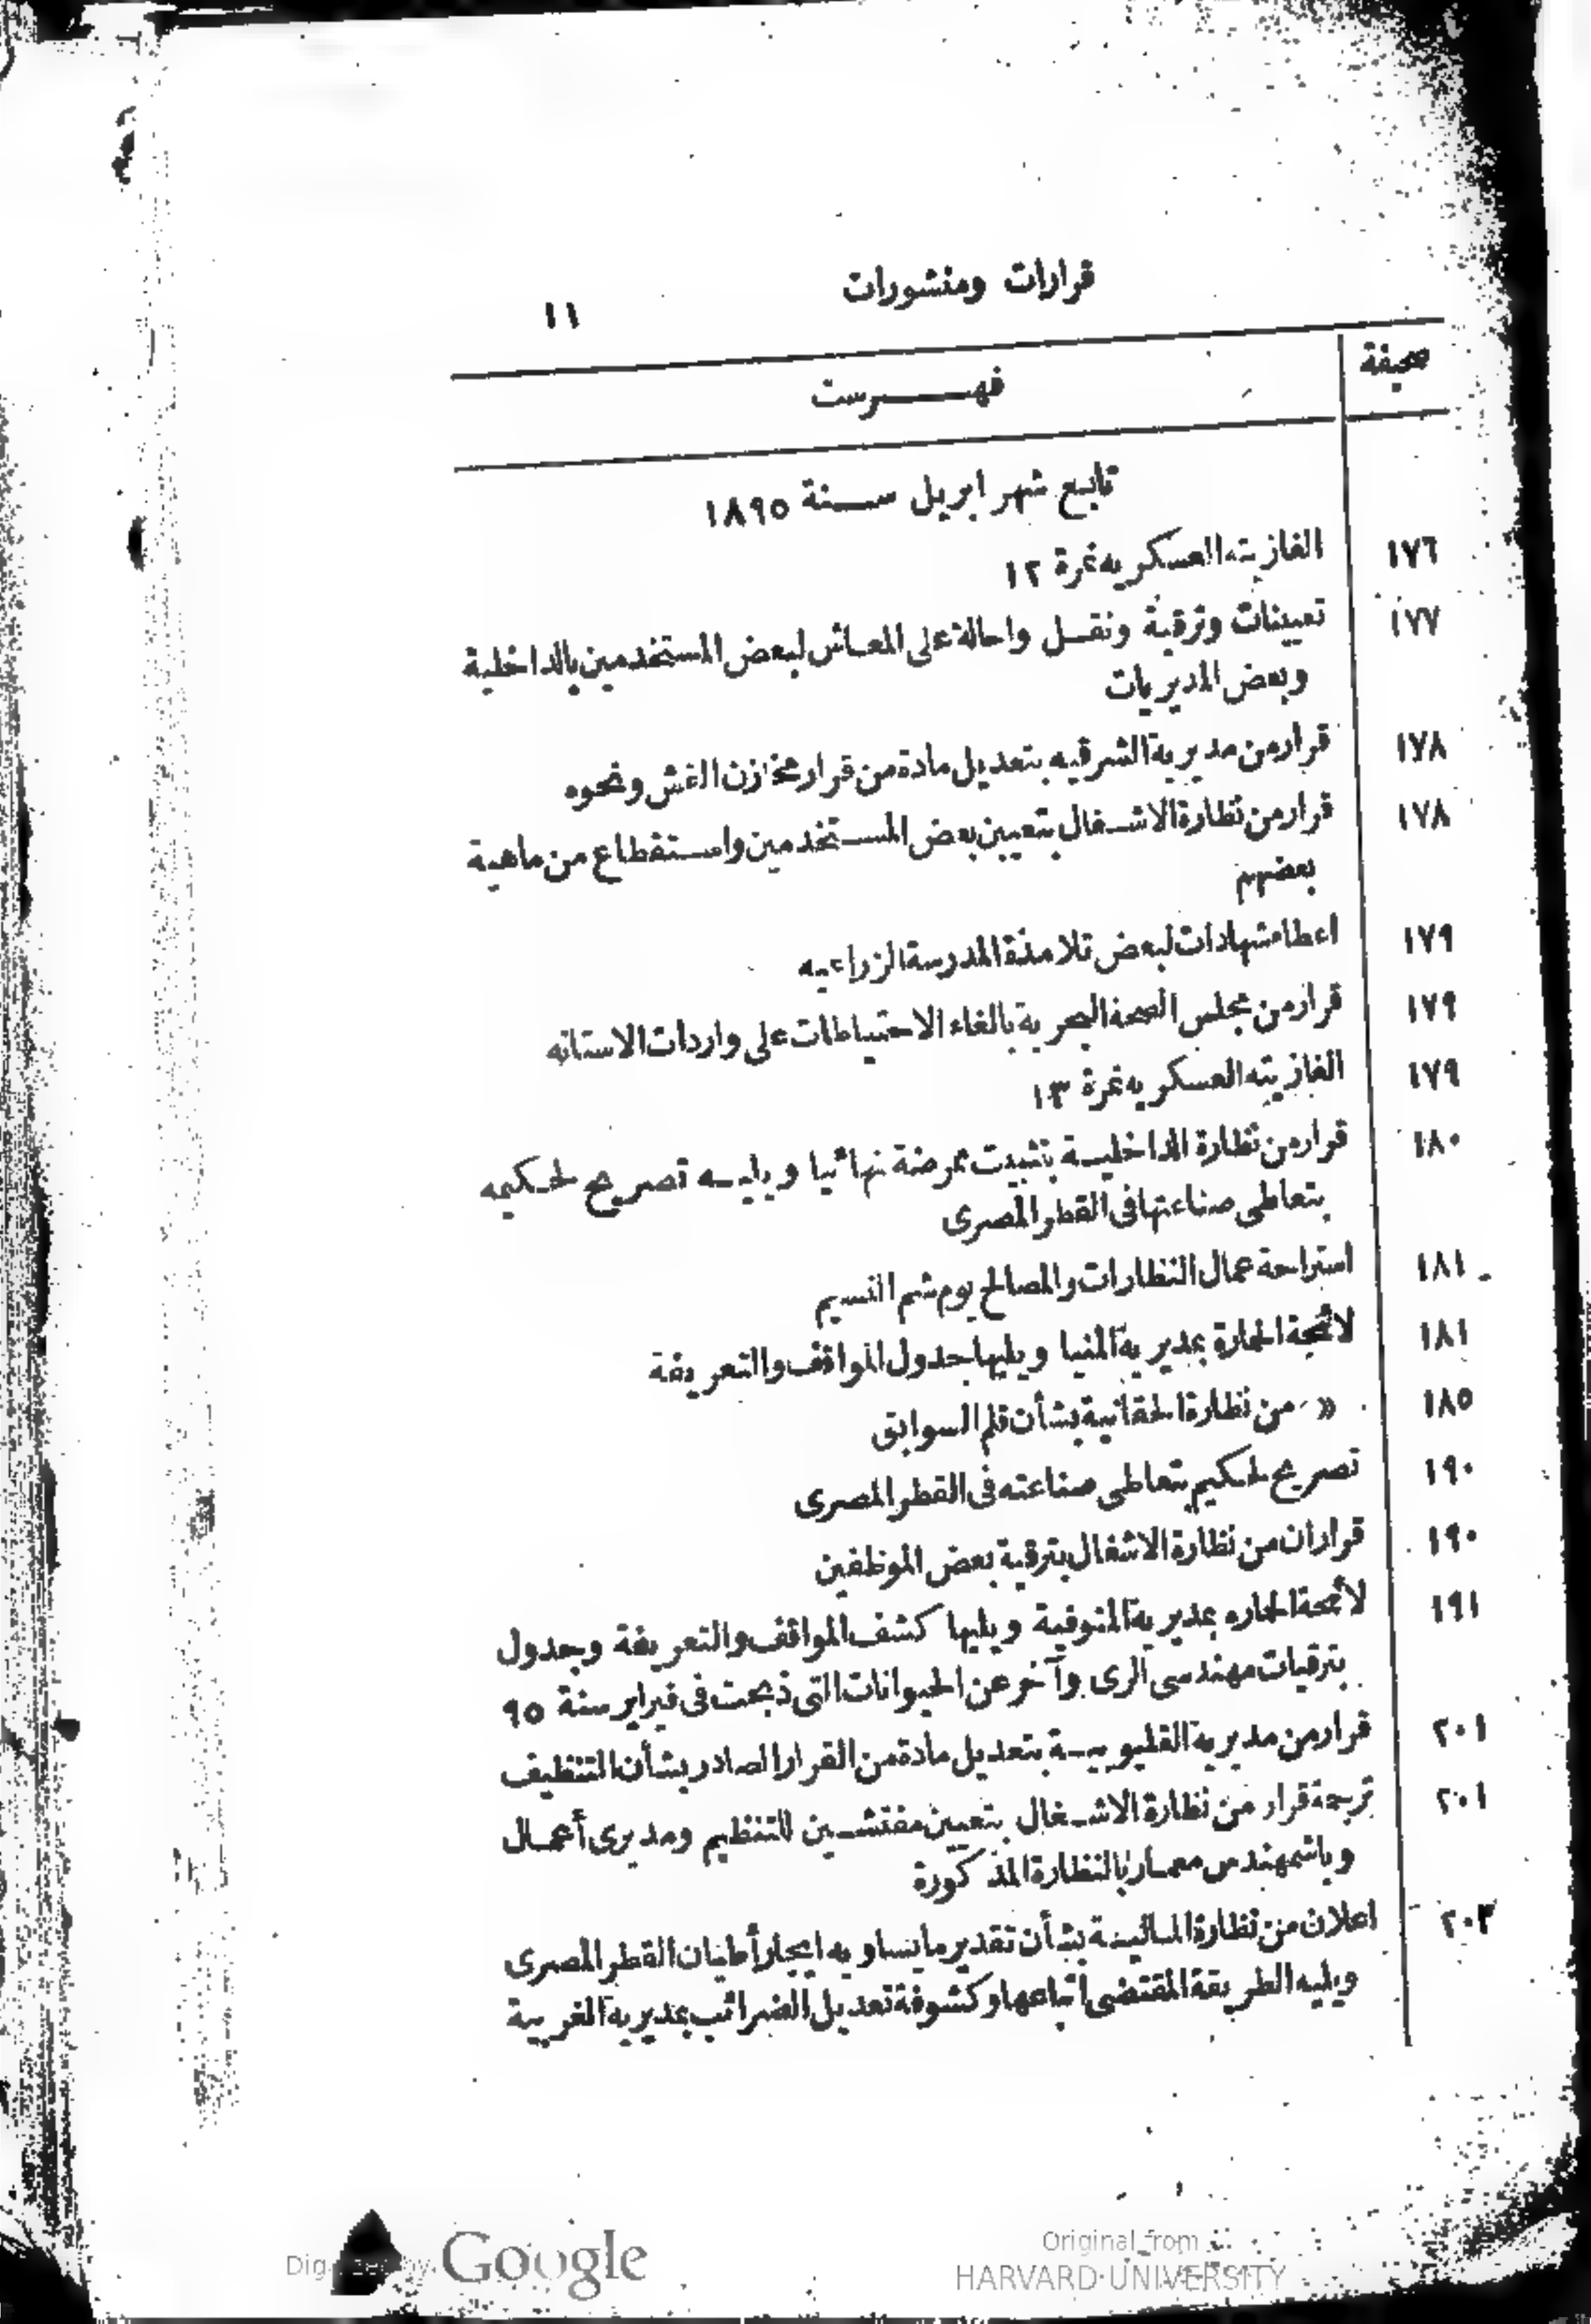 قرارات ومنشورات
١١
صحيفة
فهـــرست
تابع شهر ابريل ســنة ١٨٩٥
١٧٦ الغازيته العسكريه نمرة ١٢
١٧٧ تعيينات وترقية ونقــل واحالة على المعـاش لبعض المستخدمين بالداخلية
وبعض المديريات
١٧٨ قرار من مديرية الشرقيه بتعديل مادة من قرار مخازن الغش ونحوه
١٧٨ قرار من نظارة الاشـغال بتعيين بعض المسـتخدمين واسـتقطاع من ماهية
بعضهم
١٧٩ اعطاء شهادات لبعض تلامذة المدرسة الزراعيه
١٧٩ قرار من مجلس الصحة البحرية بالغاء الاحتياطات على واردات الاستانه
١٧٩ الغازيته العسكريه نمرة ١٣
١٨٠ قرار من نظارة الداخليـة بتثبيت ممرضة نهائيا ويليـه تصريح لحـكيمه
بتعاطى صناعتها فى القطر المصرى
١٨١ استراحة عمال النظارات والمصالح يوم شم النسيم
١٨١ لائحة الحارة بمديرية المنيا ويليها جدول المواقف والتعريفة
١٨٥ « من نظارة الحقانية بشأن قلم السوابق
١٩٠ تصريح لحـكيم بتعاطى صناعته فى القطر المصرى
١٩٠ قراران من نظارة الاشغال بترقية بعض الموظفين
١٩١ لائحة الحاره بمديرية المنوفية ويليها كشف المواقف والتعريفة وجدول
بترقيات مهندسى الرى وآخر عن الحيوانات التى ذبحت فى فبراير سنة ٩٥
٢٠١ قرار من مديرية القليوبيـة بتعديل مادة من القرار الصادر بشأن التنظيف
٢٠١ ترجمة قرار من نظارة الاشـغال بتعيين مفتشـين للتنظيم ومديرى أعمـال
وباشمهندس معمـار بالنظارة المذكورة
٢٠٣ اعلان من نظارة المـاليـة بشأن تقدير ما يساويه ايجار أطيان القطر المصرى
ويليه الطريقة المقتضى اتباعها وكشوفة تعديل الضرائب بمديرية الغربية
Digitized by Google
Original from
HARVARD UNIVERSITY